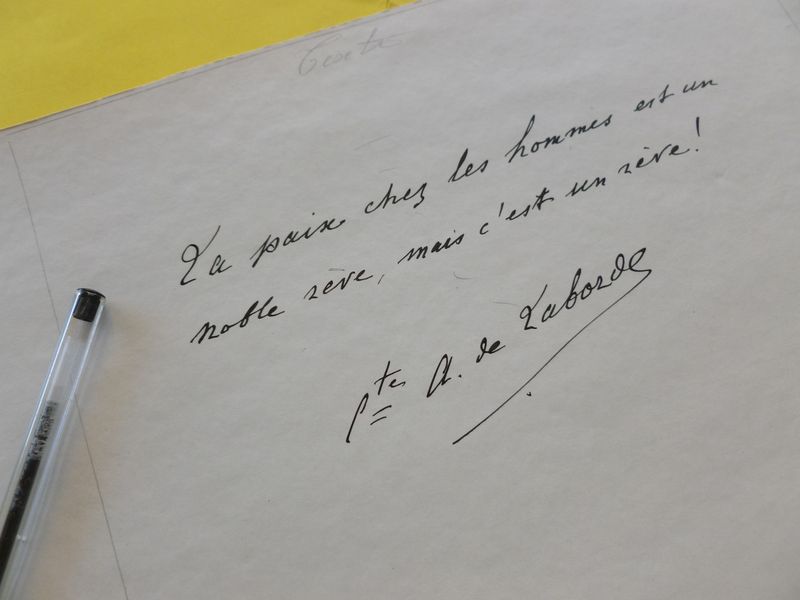 La paix chez les hommes est un
noble rêve, mais c'est un rêve!
Ctes A. de Laborde